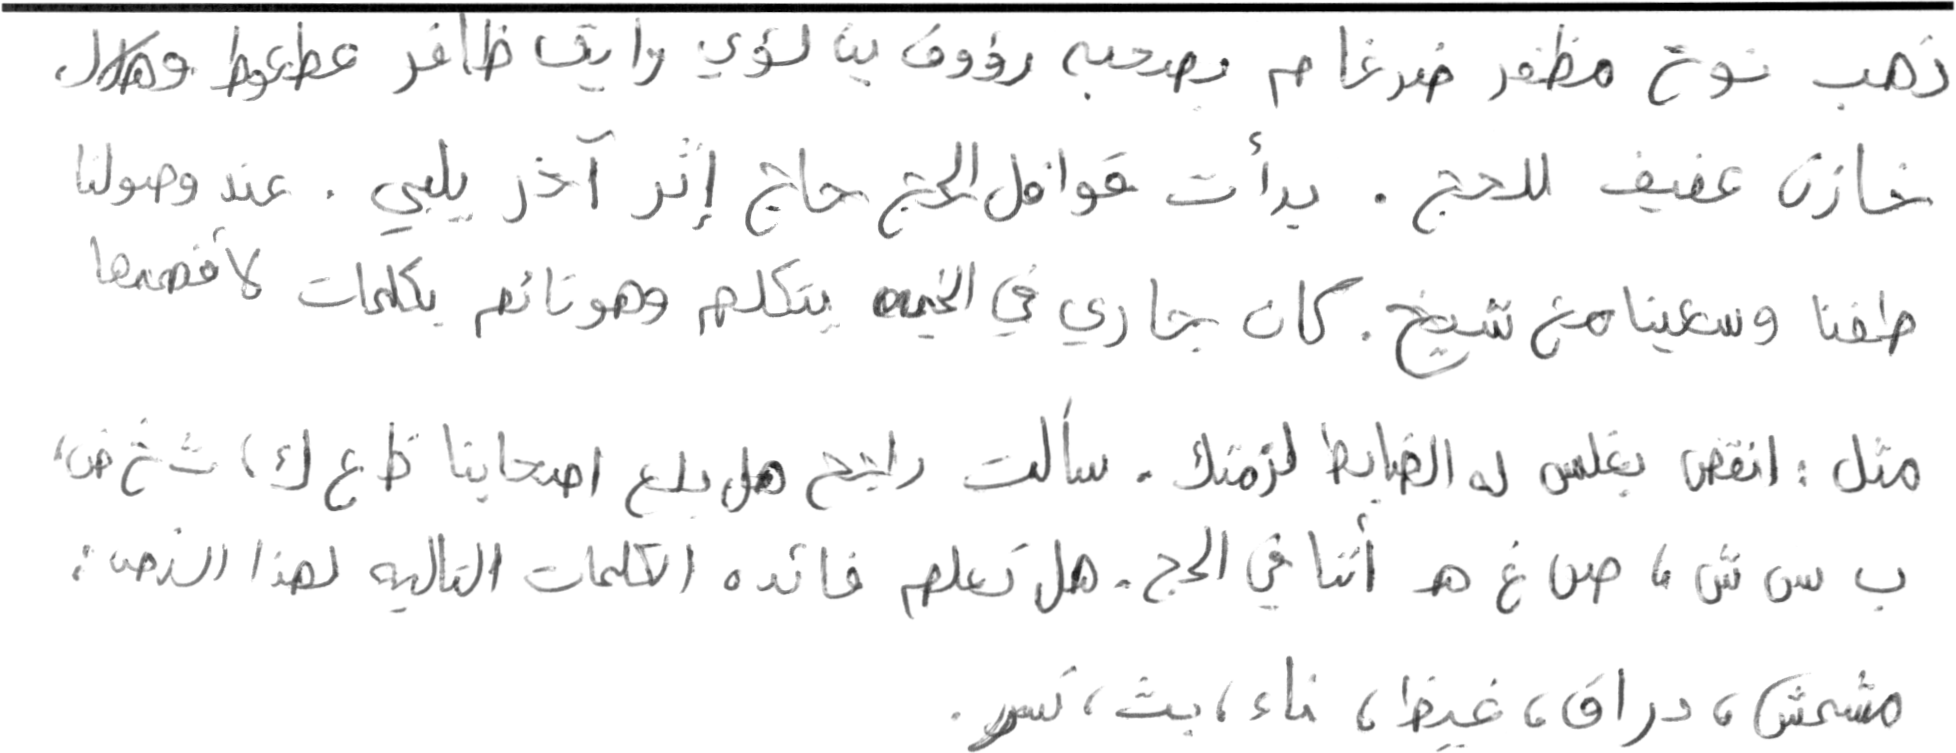 ذهب نوح مظفر ضرغام بصحبه رؤوف بن لؤي رايق ظافر عطعوط وهلال
خازن عفيف للحج . بدأت قوافل الحج حاج إثر آخر يلبي . عند وصولنا
طفنا وسعينا مع شيخ . كان جاري في الخيمه يتكلم وهو نائم بكلمات لا أفهمها
مثل : انقض بغلس له الضابط لزمتك . سألت راجح هل بلع اصحابنا ظ ع ك ، ث خ ض ،
ب س ش ، ص غ هـ أثنا في الحج . هل تعلم فائده الكلمات التاليه لهذا النص :
مشمش ، دراق ، غيظ ، ناء ، بث ، نسر .